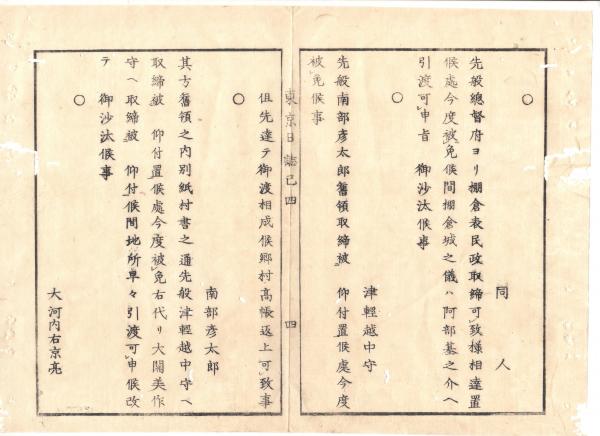 ○
同人
先般總督府ヨリ棚倉表民政取締可致樣相達置
候處今度被免候間棚倉城之儀ハ阿部基之介ヘ
引渡可申旨　御沙汰候事
○
津輕越中守
先般南部彦太郎舊領取締被　仰付置候處今度
被免候事
東京日誌己四　四
但先達テ御渡相成候鄕村高帳返上可致事
○
南部彦太郎
其方舊領之内別紙村書之通先般津輕越中守ヘ
取締被　仰付置候處今度被免右代リ大關美作
守ヘ取締被　仰付候間地所早々引渡可申候改
テ　御沙汰候事
○
大河内右京亮